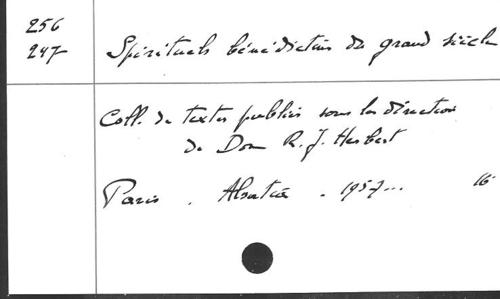 256
247
Spirituels bénédictins du grand siècle
Coll. de textes publiés sous la direction
de Dom R. J. Hesbert
Paris . Alsatia . 1957... 16